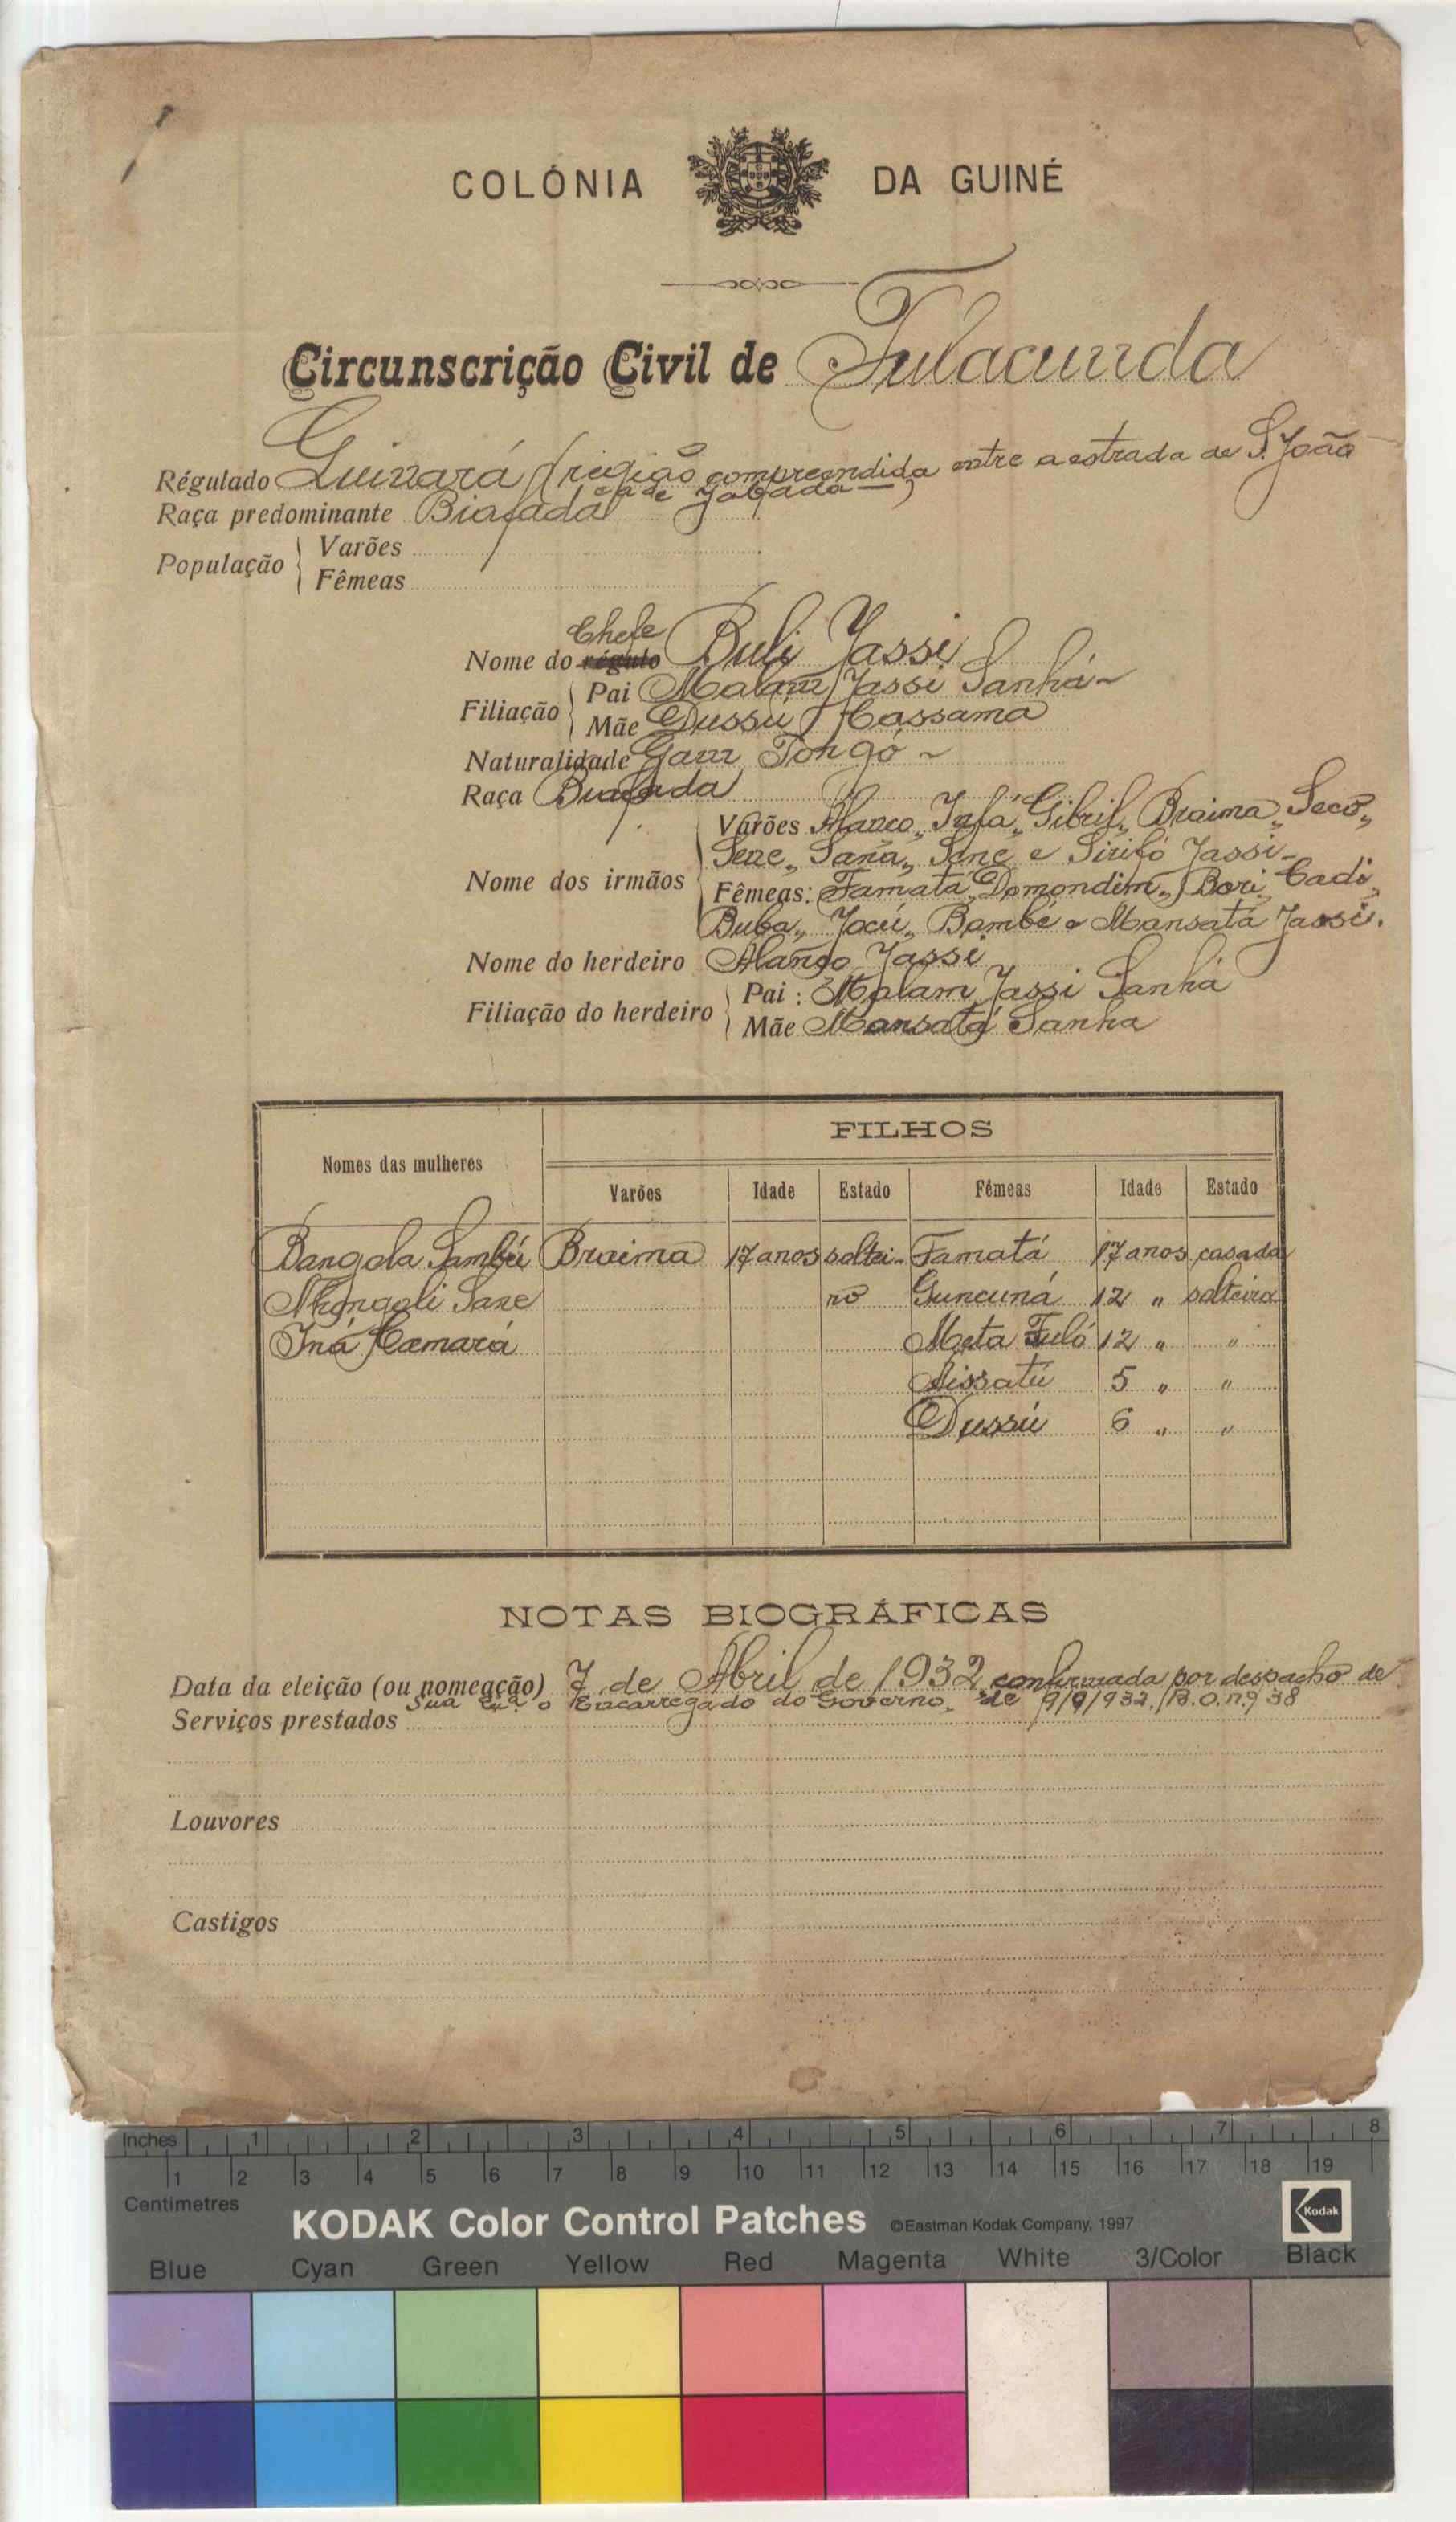 COLÓNIA DA GUINÉ
Circunscrição Civil de Fulacunda
Régulado Guinará (região compreendida entre a estrada de S. João
e a de Jabada)
Raça predominante Biafada
População Varões
Fêmeas
Chefe
Nome do régulo Buli Jassi
Filiação Pai Malam Jassi Sanhá
Mãe Dussú Cassama
Naturalidade Gam Tongó
Raça Biafada
Varões Alanço, Infá, Gibril, Braima, Seco,
Sene, Sana, Sene e Sirifo Jassi
Nome dos irmãos
Fêmeas: Famatá, Domondim, Bori, Cadi,
Buba, Jocú, Bambé e Mansatá Jassi.
Nome do herdeiro Alanço Jassi
Filiação do herdeiro Pai: Malam Jassi Sanhá
Mãe Mansatá Sanha
FILHOS
Nomes das mulheres Varões Idade Estado Fêmeas Idade Estado
Bangola Sambú Braima 17 anos soltei- Famatá 17 anos casada
Nhongoli Sane ro Guncuná 12 " solteira
Iná Camará Meta Fuló 12 " "
Aissatú 5 " "
Dussú 6 " "
NOTAS BIOGRÁFICAS
Data da eleição (ou nomeação) 7 de Abril de 1932, confirmada por despacho de
Sua Exª. o Encarregado do Governo, de 9/9/932, B.O. nº 38
Serviços prestados
Louvores
Castigos
Inches 1 2 3 4 5 6 7 8
1 2 3 4 5 6 7 8 9 10 11 12 13 14 15 16 17 18 19
Centimetres
KODAK Color Control Patches ©Eastman Kodak Company, 1997 Kodak
Blue Cyan Green Yellow Red Magenta White 3/Color Black